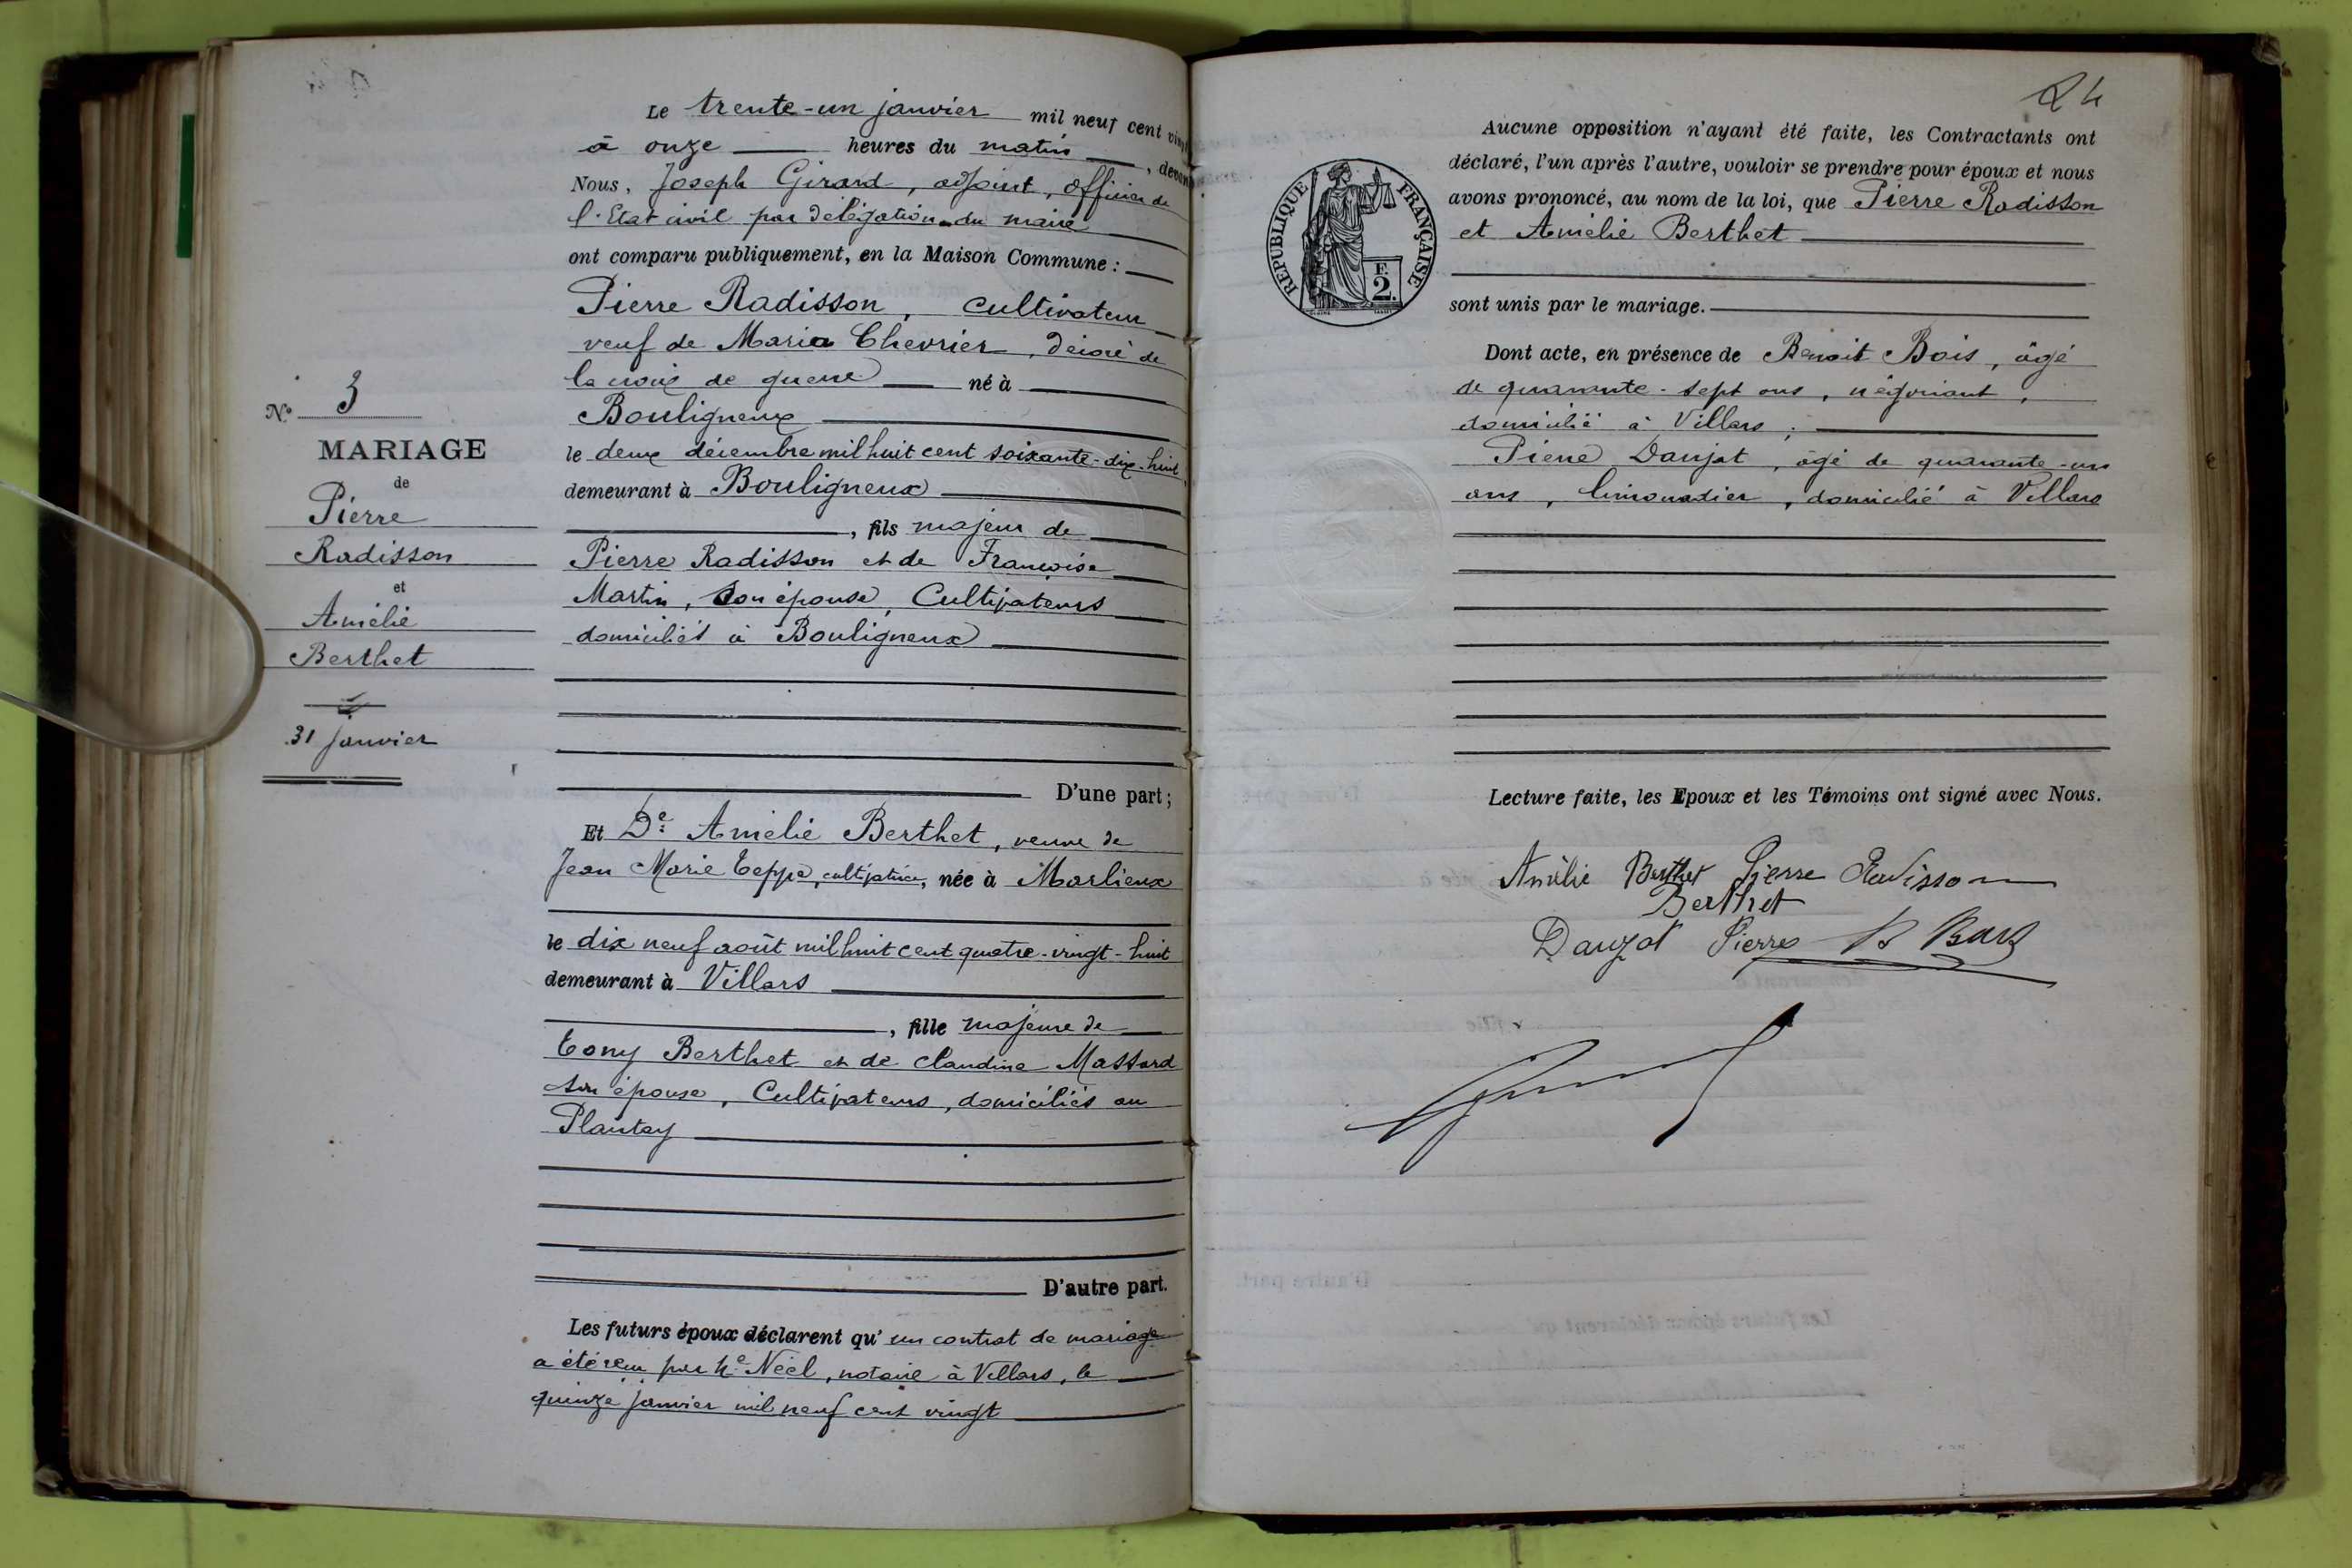 N° 3
MARIAGE
de
Pierre
Radisson
et
Amélie
Berthet
31 janvier
Le trente-un janvier mil neuf cent vingt
à onze heures du matin, devant
Nous, Joseph Girard, adjoint, officier de
l'Etat civil par délégation du maire
ont comparu publiquement, en la Maison Commune :
Pierre Radisson, cultivateur
veuf de Maria Chevrier, décoré de
la croix de guerre né à
Bouligneux
le deux décembre mil huit cent soixante-dix-huit
demeurant à Bouligneux
, fils majeur de
Pierre Radisson et de Françoise
Martin, son épouse, Cultivateurs
domiciliés à Bouligneux
D'une part ;
Et De Amélie Berthet, veuve de
Jean Marie Teppe, cultivatrice, née à Marlieux
le dix neuf août mil huit cent quatre-vingt-huit
demeurant à Villars
, fille majeure de
Tony Berthet et de Claudine Massard
son épouse, Cultivateurs, domiciliés au
Plantay
D'autre part.
Les futurs époux déclarent qu'un contrat de mariage
a été reçu par Me Néel, notaire à Villars, le
quinze janvier mil neuf cent vingt
24
REPUBLIQUE FRANÇAISE
F.
2.
Aucune opposition n'ayant été faite, les Contractants ont
déclaré, l'un après l'autre, vouloir se prendre pour époux et nous
avons prononcé, au nom de la loi, que Pierre Radisson
et Amélie Berthet
sont unis par le mariage.
Dont acte, en présence de Benoit Bois, âgé
de quarante-sept ans, négociant,
domicilié à Villars ;
Pierre Danjat, âgé de quarante-un
ans, limonadier, domicilié à Villars
Lecture faite, les Epoux et les Témoins ont signé avec Nous.
Amélie Berthet Pierre Radisson
Berthet
Danjat Pierre B Bois